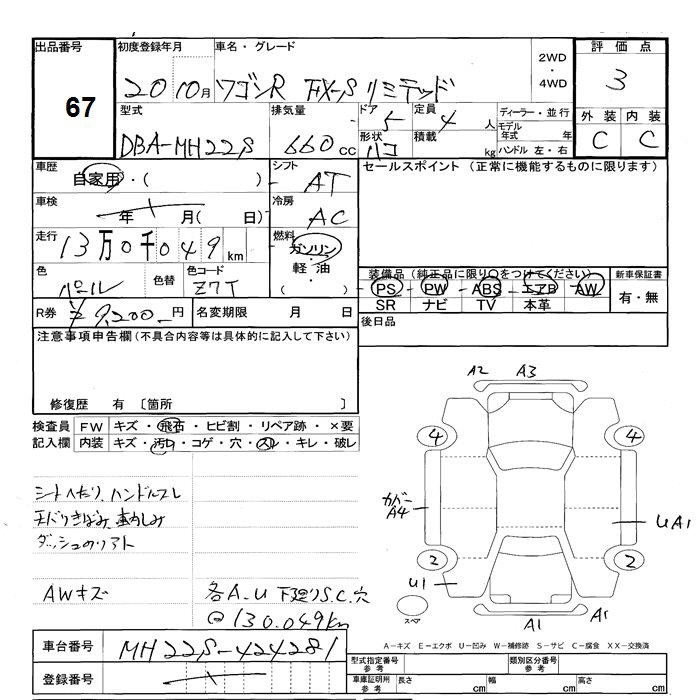 出品番号 初度登録年月 車名・グレード 2WD ・ 4WD 評価点
67 20 10月 ワゴンR FX-Sリミテッド 3
型式 排気量 ドア 定員 ディーラー・並行 外装 内装
DBA-MH22S 660cc 5 4人 モデル年式 年 C C
形状 積載 ハンドル 左・右
ハコ kg
車歴 自家用・( ) シフト AT セールスポイント (正常に機能するものに限ります)
車検 年 月( 日) 冷房 AC
走行 13万0千049km 燃料 ガソリン・軽油・( )
色 パール 色替 色コード Z7T
装備品(純正品に限り○をつけてください) 新車保証書
PS PW ABS エアB AW 有・無
SR ナビ TV 本革
R券 ¥9,200-円 名変期限 月 日 後日品
注意事項申告欄(不具合内容等は具体的に記入して下さい)
修復歴 有 〔箇所 〕
検査員 FW キズ・飛石・ヒビ割・リペア跡・×要
記入欄 内装 キズ・汚れ・コゲ・穴・スレ・キレ・破レ
シートヘたり、ハンドルスレ
ダッシュのリフト
AWキズ
各A.U 下廻りS.C.穴
@130.049km
A2 A3
4 4
カバー A4
UA1
2 2
U1
スペア
A1 A1
車台番号 MH22S-424281
登録番号
A-キズ E-エクボ U-凹み W-補修跡 S-サビ C-腐食 XX-交換済
型式指定番号 参考 類別区分番号 参考
車庫証明用 参考 長さ cm 幅 cm 高さ cm